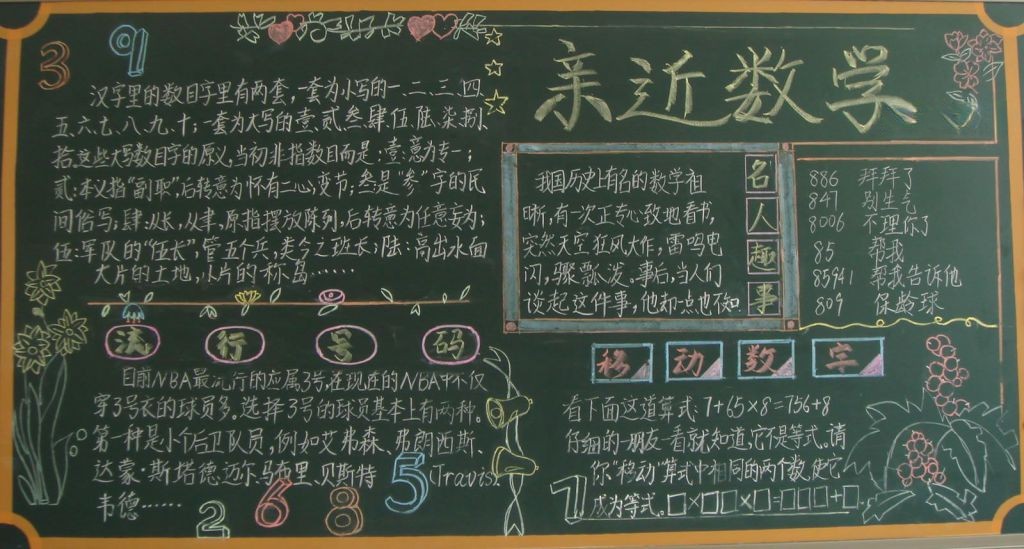 3 9
汉字里的数目字里有两套,一套为小写的一.二.三.四.
五.六.七.八.九.十;一套为大写的壹.贰.叁.肆.伍.陆.柒.捌.
拾.这些大写数目字的原义,当初非指数目而是:壹:意为专一;
贰:本义指“副职”,后转意为怀有二心;变节;叁是“参”字的民
间俗写,肆:从长,从聿,原指摆放陈列,后转意为任意妄为;
伍:军队的“伍长”,管五个兵,类今之班长;陆:高出水面
大片的土地,小片的称岛……
流行号码
目前NBA最流行的应属3号,在现在的NBA中不仅
穿3号衣的球员多。选择3号的球员基本上有两种。
第一种是小个后卫队员,例如艾弗森、弗朗西斯、
达蒙·斯塔德迈尔.马布里、贝斯特(Travis).
韦德……
2 6 8 5
亲近数学
名人趣事
我国历史上有名的数学祖
晰,有一次正专心致地看书,
突然天空狂风大作,雷鸣电
闪,骤瓢泼.事后,当人们
谈起这件事,他却一点也不知
886 拜拜了
847 别生气
8006 不理你了
85 帮我
85941 帮我告诉他
809 保龄球
移动数字
看下面这道算式:7+65×8=756+8
仔细的一朋友一看就知道,它不是等式。请
你“移动”算式中相同的两个数,使它
成为等式。□×□□×□=□□□+□.
7